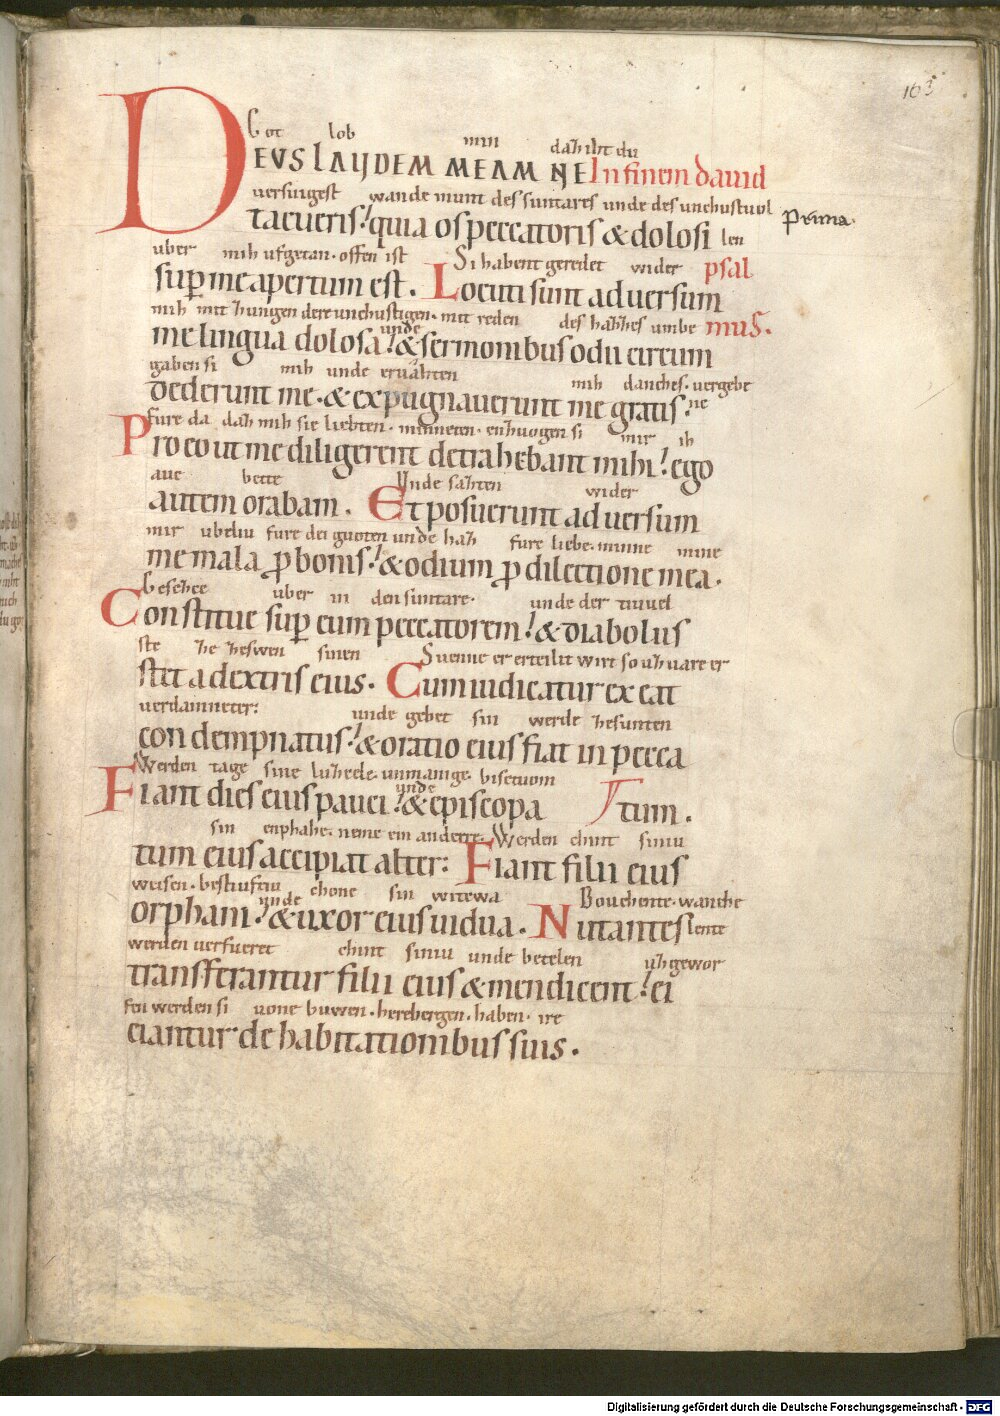 163
Got lob min daz iht du
DEUS LAUDEM MEAM NE In finem david
versuigest wande munt des suntares unde des unchustuol
tacueris! quia os peccatoris & dolosi len
Prima.
uber mih ufgetan. offen ist Si habent geredet wider psal
sup me apertum est. Locuti sunt adversum
mih mit zungen dere unchustigen. mit reden des hazzes umbe mus.
me lingua dolosa! & sermonibus odii circum
unde
gaben si mih unde ervahten mih danches. vergebe
dederunt me. & expugnaverunt me gratis. ne
fure da daz mih sie liebten. minneten. enzuogen si mir ih
Pro eo ut me diligerent detrahebant mihi! ego
ave bette Unde sazten wider
autem orabam. Et posuerunt adversum
mir ubeliu fure dei guoten unde haz fure liebe. minne mine
me mala p bonis! & odium p dilectione mea.
besezce uber in den suntare. unde der tiuvel
Constitue sup eum peccatorem! & diabolus
ste ze zeswen sinen Suenne er erteilit wirt so uzvare er
stet a dextris eius. Cum iudicatur exeat
verdamneter: unde gebet sin werde ze sunten
condempnatus! & oratio eius fiat in pecca
Werden tage sine luzcele. unmanige. biscetuom
Fiant dies eius pauci! & episcopa tum.
unde
sin enphahe. neme ein anderre. Werden chint siniu
tum eius accipiat alter: Fiant filii eius
weisen. bestiuftiu unde chone sin witewa Bouchente. wanche
orphani! & uxor eius vidua. Nutantes lente
werden verfueret chint siniu unde betelen uzgewor
transferantur filii eius & mendicent! ei
fen werden si vone buwen. herebergen. haben. ire
ciantur de habitationibus suis.
Digitalisierung gefördert durch die Deutsche Forschungsgemeinschaft - DFG